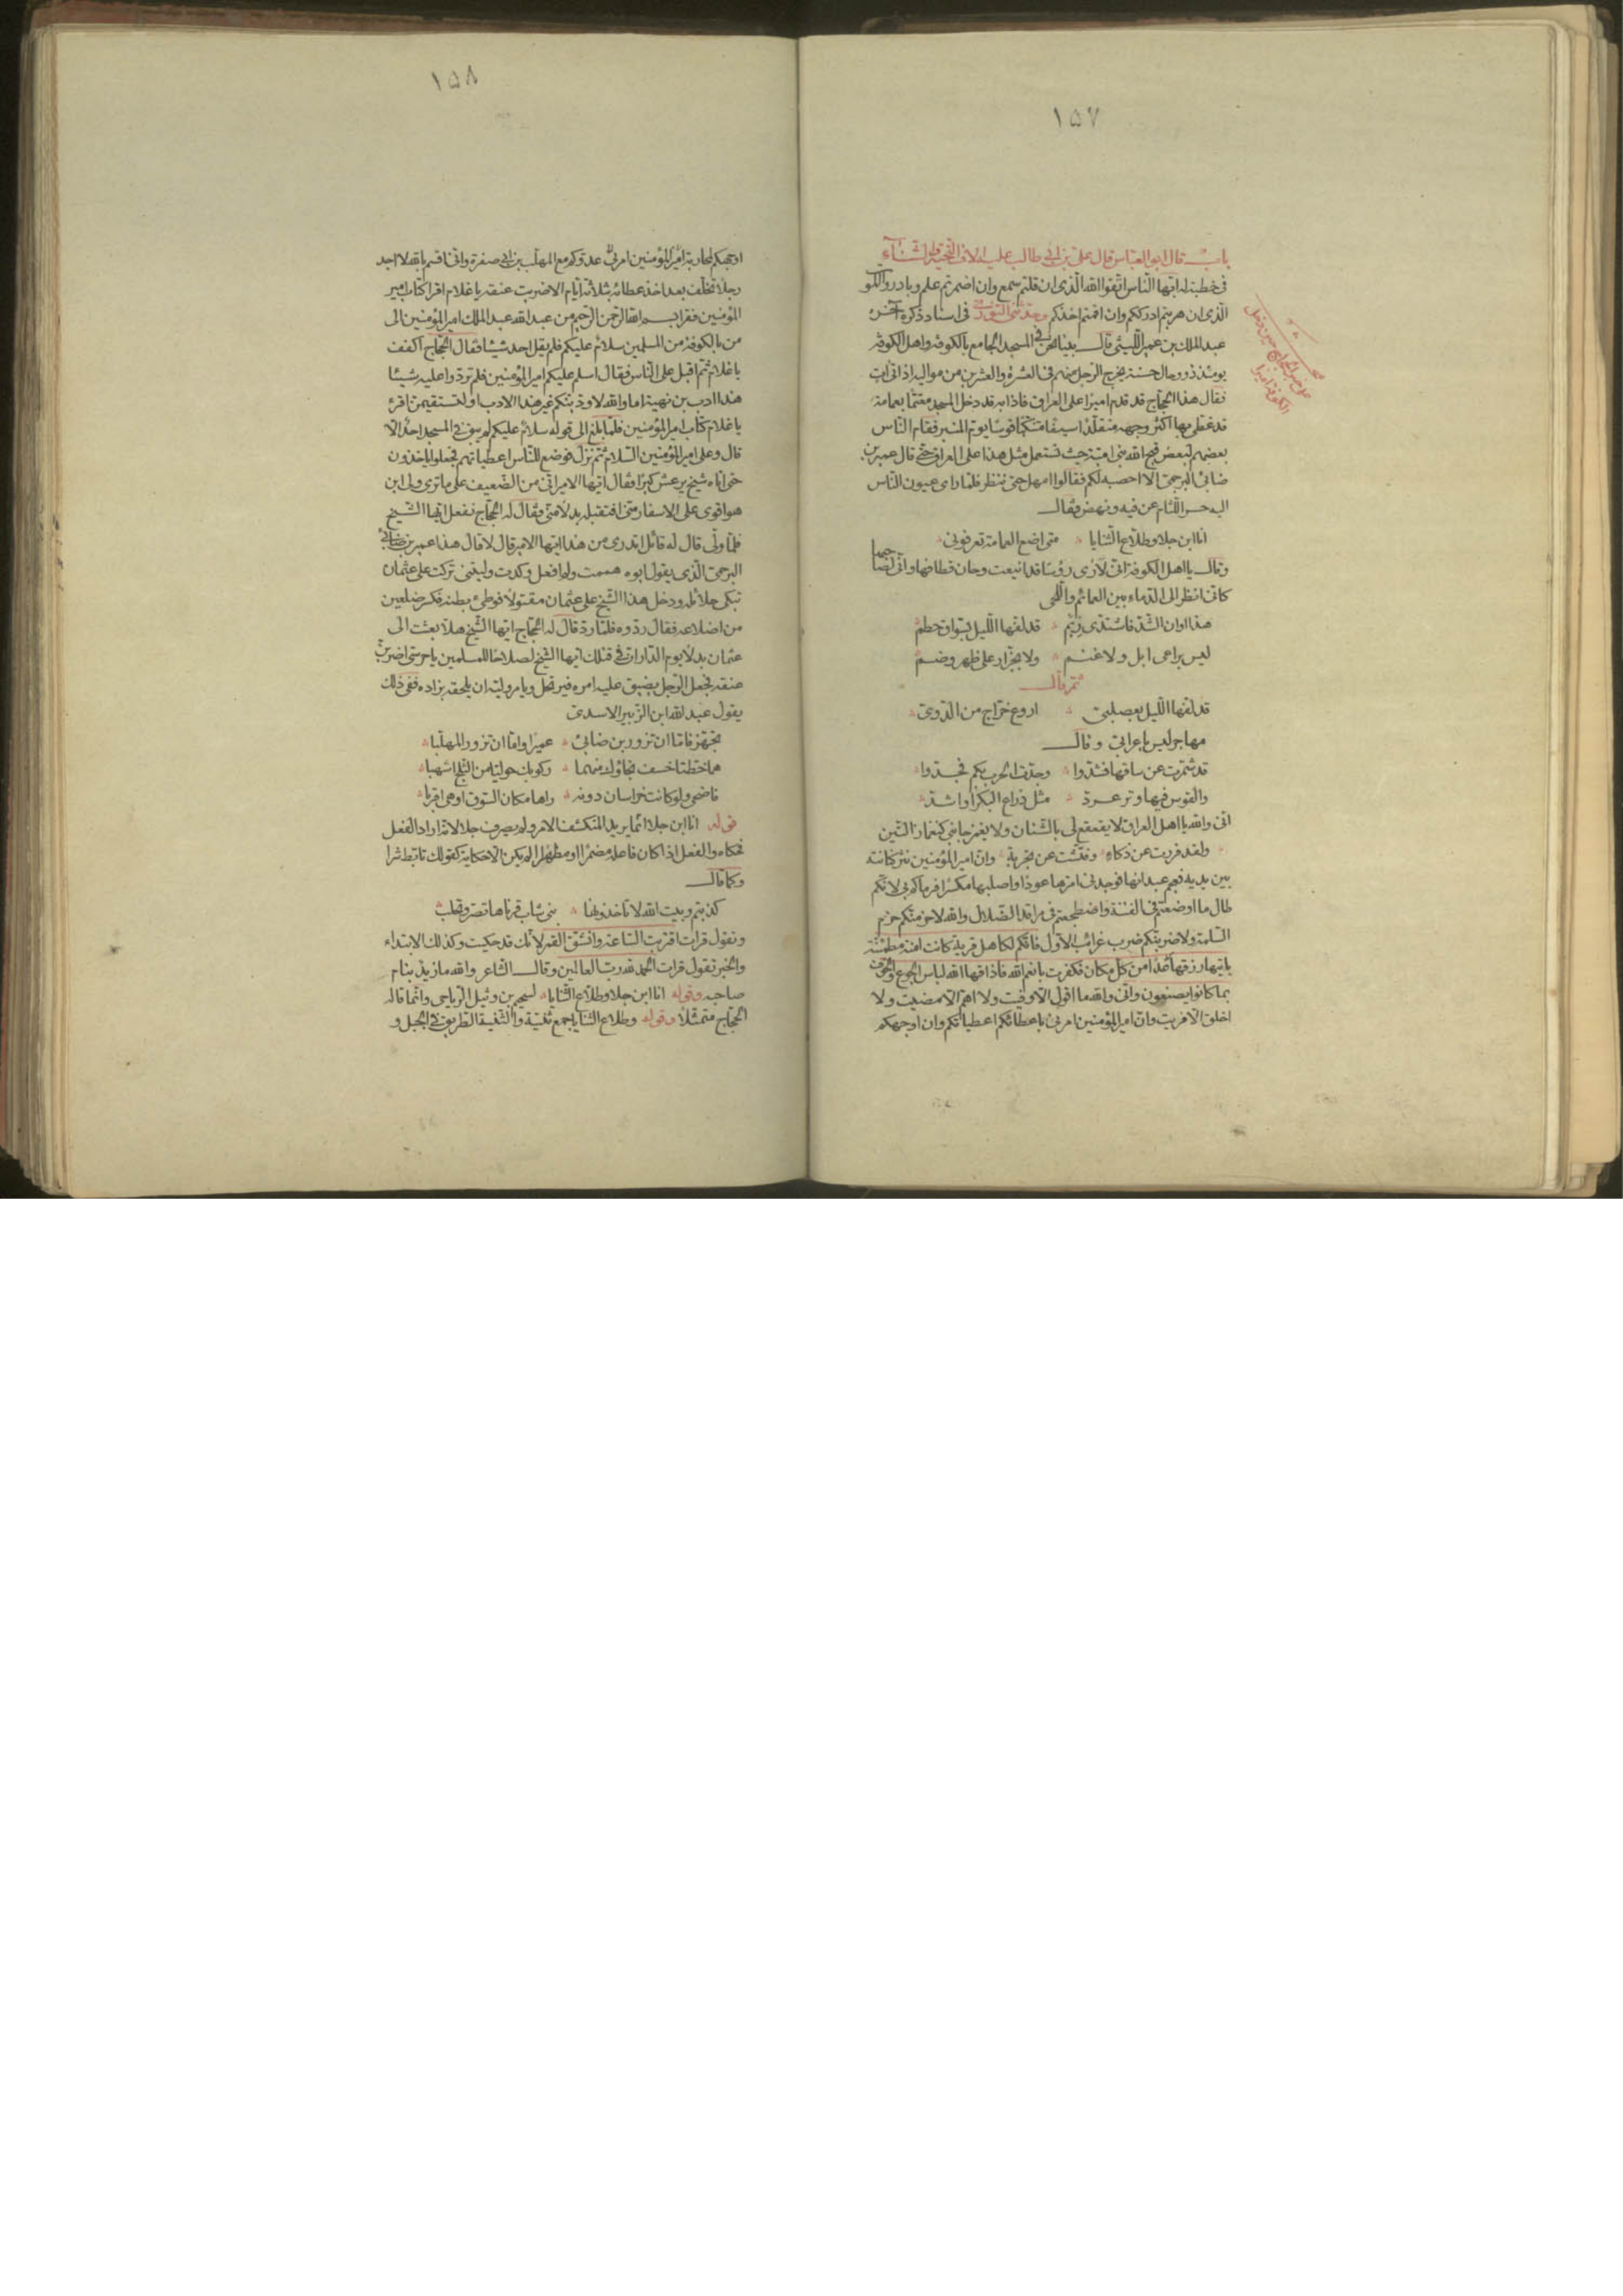 ١٥٧
باب قال ابو العباس قال على بن ابى طالب عليه الاف التحية والثناء
فى خطبة له ايها الناس اتقوا الله الذى ان قلتم سمع وان اضمرتم علم وبادروا الموت
الذى ان هربتم ادرككم وان اقمتم اخذكم وحدثنى التوزى فى اسناد ذكره آخره
عبد الملك بن عمير الليثى قال بينا نحن فى المسجد الجامع بالكوفة واهل الكوفة
يومئذ ذووحال حسنة يخرج الرجل منهم فى العشرة والعشرين من مواليه اذ اتى ات
فقال هذا الحجاج قد قدم اميرا على العراق فاذا به قد دخل المسجد معتما بعمامة
قد غطى بها اكثر وجهه متقلدا سيفا متنكبا قوسا يوم المنبر فقام الناس
بعضهم لبعض قبح الله بنى امية حيث تستعمل مثل هذا على العراق حتى قال عمير بن
ضابئ البرجمى الا احصبه لكم فقالوا امهل حتى ننظر فلما راى عيون الناس
اليه حسر اللثام عن فيه ونهض فقال
انا ابن جلا وطلاع الثنايا متى اضع العمامة تعرفونى
وقال يا اهل الكوفة انى لارى رؤسا قد اينعت وحان قطافها وانى لصاحبها
كانى انظر الى الدماء بين العمائم واللحى
هذا اوان الشد فاشتدى زيم قد لفها الليل بسواق حطم
ليس براعى ابل ولا غنم ولا بجزار على ظهر وضم
ثم قال
قد لفها الليل بعصلبى اروع خراج من الدوى
مهاجر ليس باعرابى وقال
قد شمرت عن ساقها فشدوا وجدت الحرب بكم فجدوا
والقوس فيها وتر عرد مثل ذراع البكر او اشد
انى والله يا اهل العراق لا يقعقع لى بالشنان ولا يغمز جانبى كتغماز التين
ولقد فررت عن ذكاء وفتشت عن تجربة وان امير المؤمنين نثر كنانته
بين يديه فعجم عيدانها فوجدنى امرها عودا واصلبها مكسرا فرماكم بى لانكم
طال ما اوضعتم فى الفتنة واضطجعتم فى مراقد الضلال والله لاحزمنكم حزم
السلمة ولاضربنكم ضرب غرائب الابل فانكم لكاهل قرية كانت امنة مطمئنة
ياتيها رزقها رغدا من كل مكان فكفرت بانعم الله فاذاقها الله لباس الجوع والخوف
بما كانوا يصنعون وانى والله ما اقول الا وفيت ولا اهم الا مضيت ولا
اخلق الا فريت وان امير المؤمنين امرنى باعطائكم اعطياتكم وان اوجهكم
١٥٨
اوجهكم لمحاربة امير المؤمنين امرنى عدوكم مع المهلب بن ابى صفرة وانى اقسم بالله لا اجد
رجلا تخلف بعد اخذ عطائه بثلاثة ايام الا ضربت عنقه يا غلام اقرا كتاب امير
المؤمنين فقرا بسم الله الرحمن الرحيم من عبد الله عبد الملك امير المؤمنين الى
من بالكوفة من المسلمين سلام عليكم فلم يقل احد شيئا فقال الحجاج اكفف
يا غلام ثم اقبل على الناس فقال اسلم عليكم امير المؤمنين فلم تردوا عليه شيئا
هذا ادب بن نهية اما والله لاودبنكم غير هذا الادب او لتستقيمن اقرء
يا غلام كتاب امير المؤمنين فلما بلغ الى قوله سلام عليكم لم يبق فى المسجد احد الا
قال وعلى امير المؤمنين السلام ثم نزل فوضع للناس اعطياتهم فجعلوا ياخذون
حتى اتاه شيخ يرعش كبرا فقال ايها الامير انى من الضعيف على ما ترى ولى ابن
هو اقوى على الاسفار منى افتقبله بدلا منى فقال له الحجاج نفعل ايها الشيخ
فلما ولى قال له قائل اتدرى من هذا ايها الامير قال لا قال هذا عمير بن ضابئ
البرجمى الذى يقول ابوه هممت ولم افعل وكدت وليتنى تركت على عثمان
تبكى حلائله ودخل هذا الشيخ على عثمان مقتولا فوطئ بطنه فكسر ضلعين
من اضلاعه فقال ردوه فلما رد قال له الحجاج ايها الشيخ هلا بعثت الى
عثمان بدلا يوم الدار ان فى قتلك ايها الشيخ لصلاحا للمسلمين يا حرسى اضربن
عنقه فجعل الرجل يضيق عليه امره فيرتحل ويامر وليه ان يلحقه بزاده ففى ذلك
يقول عبد الله ابن الزبير الاسدى
تجهز فاما ان تزور بن ضابئ عميرا واما ان تزور المهلبا
هما خطتا خسف نجاؤك منهما ركوبك حوليا من الثلج اشهبا
فاضحى ولو كانت خراسان دونه راها مكان السوق او هى اقربا
قوله انا ابن جلا انما يريد المنكشف الامر ولم يصرف جلا لانه اراد الفعل
فحكاه والفعل اذا كان فاعله مضمرا او مظهرا لم يكن الا حكاية كقولك تابط شرا
وكما قال
كذبتم وبيت الله لا تاخذونها بنى شاب قرناها تصر وتحلب
وتقول قرات اقتربت الساعة وانشق القمر لانك قد حكيت وكذلك الابتداء
والخبر تقول قرات الحمد لله رب العالمين وقال الشاعر والله ما زيد بنام
صاحبه وقوله انا ابن جلا وطلاع الثنايا لسحيم بن وثيل الرياحى وانما قاله
الحجاج متمثلا وقوله وطلاع الثنايا جمع ثنية والثنية الطريق فى الجبل و